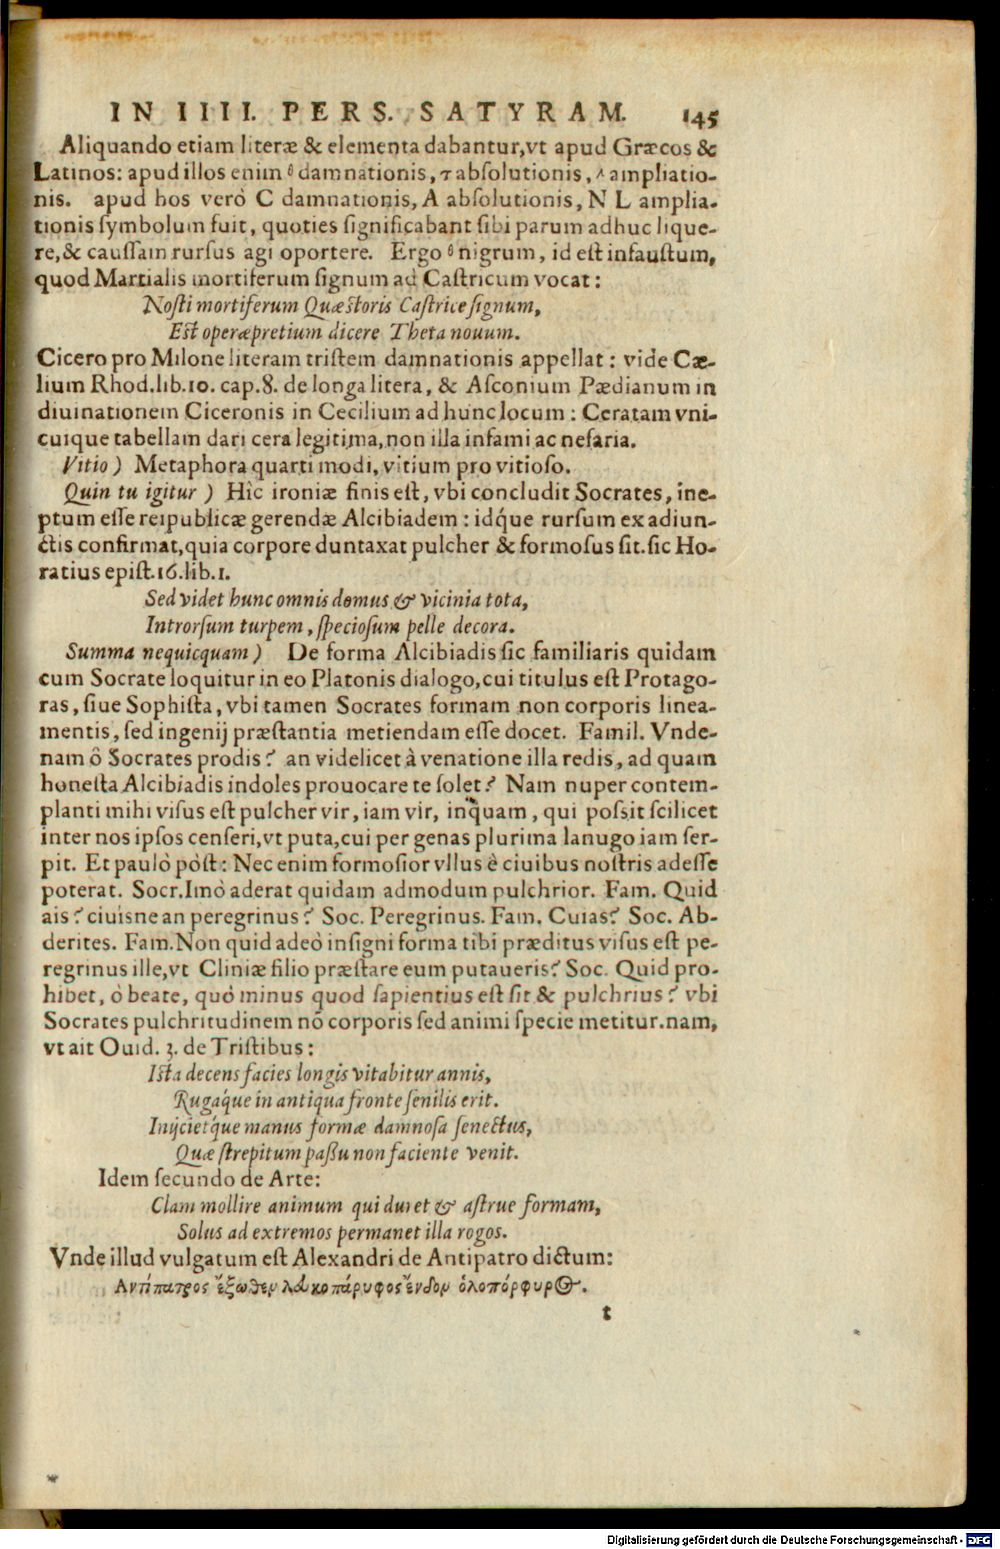 IN IIII. PERS. SATYRAM. 145
Aliquando etiam literæ & elementa dabantur, vt apud Græcos &
Latinos: apud illos enim θ damnationis, τ abſolutionis, ʌ ampliatio-
nis. apud hos verò C damnationis, A abſolutionis, N L amplia-
tionis ſymbolum fuit, quoties ſignificabant ſibi parum adhuc lique-
re, & cauſſam rurſus agi oportere. Ergo θ nigrum, id eſt infauſtum,
quod Martialis mortiferum ſignum ad Caſtricum vocat:
Noſti mortiferum Quæſtoris Caſtrice ſignum,
Eſt operæpretium dicere Theta nouum.
Cicero pro Milone literam triſtem damnationis appellat: vide Cæ-
lium Rhod. lib. 10. cap. 8. de longa litera, & Aſconium Pædianum in
diuinationem Ciceronis in Cecilium ad hunc locum: Ceratam vni-
cuique tabellam dari cera legitima, non illa infami ac nefaria.
Vitio) Metaphora quarti modi, vitium pro vitioſo.
Quin tu igitur) Hîc ironiæ finis eſt, vbi concludit Socrates, ine-
ptum eſſe reipublicæ gerendæ Alcibiadem: idq́ue rurſum ex adiun-
ctis confirmat, quia corpore duntaxat pulcher & formoſus ſit. ſic Ho-
ratius epiſt. 16. lib. 1.
Sed videt hunc omnis domus & vicinia tota,
Introrſum turpem, ſpecioſum pelle decora.
Summa nequicquam) De forma Alcibiadis ſic familiaris quidam
cum Socrate loquitur in eo Platonis dialogo, cui titulus eſt Protago-
ras, ſiue Sophiſta, vbi tamen Socrates formam non corporis linea-
mentis, ſed ingenij præſtantia metiendam eſſe docet. Famil. Vnde-
nam ô Socrates prodis? an videlicet à venatione illa redis, ad quam
honeſta Alcibiadis indoles prouocare te ſolet? Nam nuper contem-
planti mihi viſus eſt pulcher vir, iam vir, inquam, qui poſsit ſcilicet
inter nos ipſos cenſeri, vt puta, cui per genas plurima lanugo iam ſer-
pit. Et paulò pòſt: Nec enim formoſior vllus è ciuibus noſtris adeſſe
poterat. Socr. Imò aderat quidam admodum pulchrior. Fam. Quid
ais? ciuisne an peregrinus? Soc. Peregrinus. Fam. Cuias? Soc. Ab-
derites. Fam. Non quid adeò inſigni forma tibi præditus viſus eſt pe-
regrinus ille, vt Cliniæ filio præſtare eum putaueris? Soc. Quid pro-
hibet, ô beate, quò minus quod ſapientius eſt ſit & pulchrius? vbi
Socrates pulchritudinem nō corporis ſed animi ſpecie metitur. nam,
vt ait Ouid. 3. de Triſtibus:
Iſta decens facies longis vitabitur annis,
Rugaq́ue in antiqua fronte ſenilis erit.
Inijcietq́ue manus formæ damnoſa ſenectus,
Quæ ſtrepitum paſſu non faciente venit.
Idem ſecundo de Arte:
Clam mollire animum qui duret & aſtrue formam,
Solus ad extremos permanet illa rogos.
Vnde illud vulgatum eſt Alexandri de Antipatro dictum:
Αντήπατρος ἔξωθεν λευκοπάρυφος ἔνδον ὁλοπόρφυρος.
t
Digitalisierung gefördert durch die Deutsche Forschungsgemeinschaft - DFG